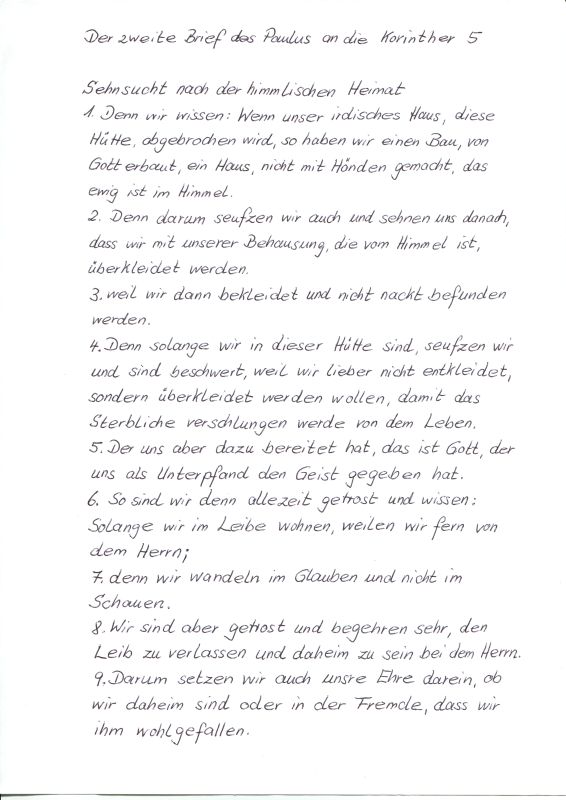 Der zweite Brief des Paulus an die Korinther 5
Sehnsucht nach der himmlischen Heimat
1. Denn wir wissen: Wenn unser irdisches Haus, diese
Hütte, abgebrochen wird, so haben wir einen Bau, von
Gott erbaut, ein Haus, nicht mit Händen gemacht, das
ewig ist im Himmel.
2. Denn darum seufzen wir auch und sehnen uns danach,
dass wir mit unserer Behausung, die vom Himmel ist,
überkleidet werden.
3. weil wir dann bekleidet und nicht nackt befunden
werden.
4. Denn solange wir in dieser Hütte sind, seufzen wir
und sind beschwert, weil wir lieber nicht entkleidet,
sondern überkleidet werden wollen, damit das
Sterbliche verschlungen werde von dem Leben.
5. Der uns aber dazu bereitet hat, das ist Gott, der
uns als Unterpfand den Geist gegeben hat.
6. So sind wir denn allezeit getrost und wissen:
Solange wir im Leibe wohnen, weilen wir fern von
dem Herrn;
7. denn wir wandeln im Glauben und nicht im
Schauen.
8. Wir sind aber getrost und begehren sehr, den
Leib zu verlassen und daheim zu sein bei dem Herrn.
9. Darum setzen wir auch unsre Ehre darein, ob
wir daheim sind oder in der Fremde, dass wir
ihm wohlgefallen.